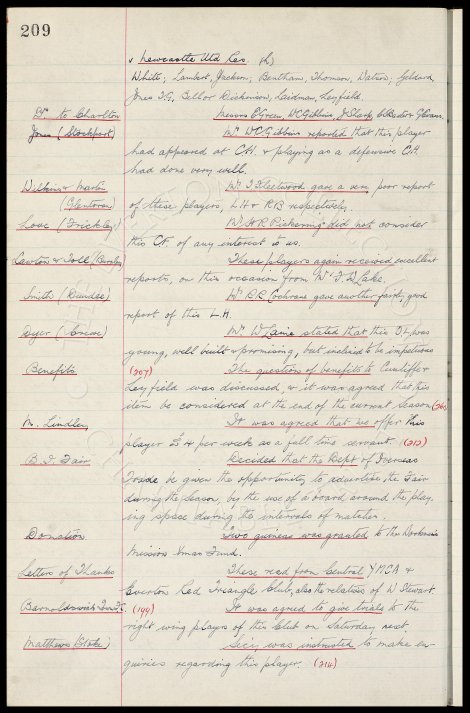 209
v Newcastle Utd Res. (h)
White; Lambert, Jackson; Bentham, Thomson, Watson; Geldard,
Jones T.G., Bell or Dickinson, Laidman, Leyfield.
Drs. to Charlton Messrs E. Green, W.C. Gibbins, J. Sharp, & G. Evans.
Jones (Stockport) Mr. W.C. Gibbins reported that this player
had appeared at C.H. & playing as a defensive C.H.
had done very well.
Wilkin & Martin Mr. J. Fleetwood gave a very poor report
(Glentoran) of these players, L.H & R.B respectively.
Love (Frickley) Mr. H.R. Pickering did not consider
this Cf. of any interest to us.
Lawton & Toll (Burnley) These players again received excellent
reports, on this occasion from Mr. J.W. Lake.
Smith (Dundee) Mr. R.R. Cochrane gave another fairly good
report of this L.H.
Dyer (Crewe) Mr. W. Laine stated that this I.L. was
young, well built & promising, but inclined to be impetuous
Benefits (207) The question of benefits to Cunliffe &
Leyfield was discussed, & it was agreed that this
item be considered at the end of the current season
N. Lindley It was agreed that we offer this
player £4 per week as a full time servant. (212)
B.I. Fair Decided that the Dept of Overseas
Trade be given the opportunity to advertise the Fair
during the season, by the use of a board around the play-
ing space during the intervals of matches.
Donation Two guineas was granted to the
Mission Xmas Fund.
Letters of Thanks These read from Central YMCA &
Everton Red Triangle Club, also the relatives of W. Stewart.
Barnoldswick Town F.C. (199) It was agreed to give trials to the
right wing players of this Club on Saturday next
Matthews (Stoke) Secy was instructed to make en-
quiries regarding this player. (214)